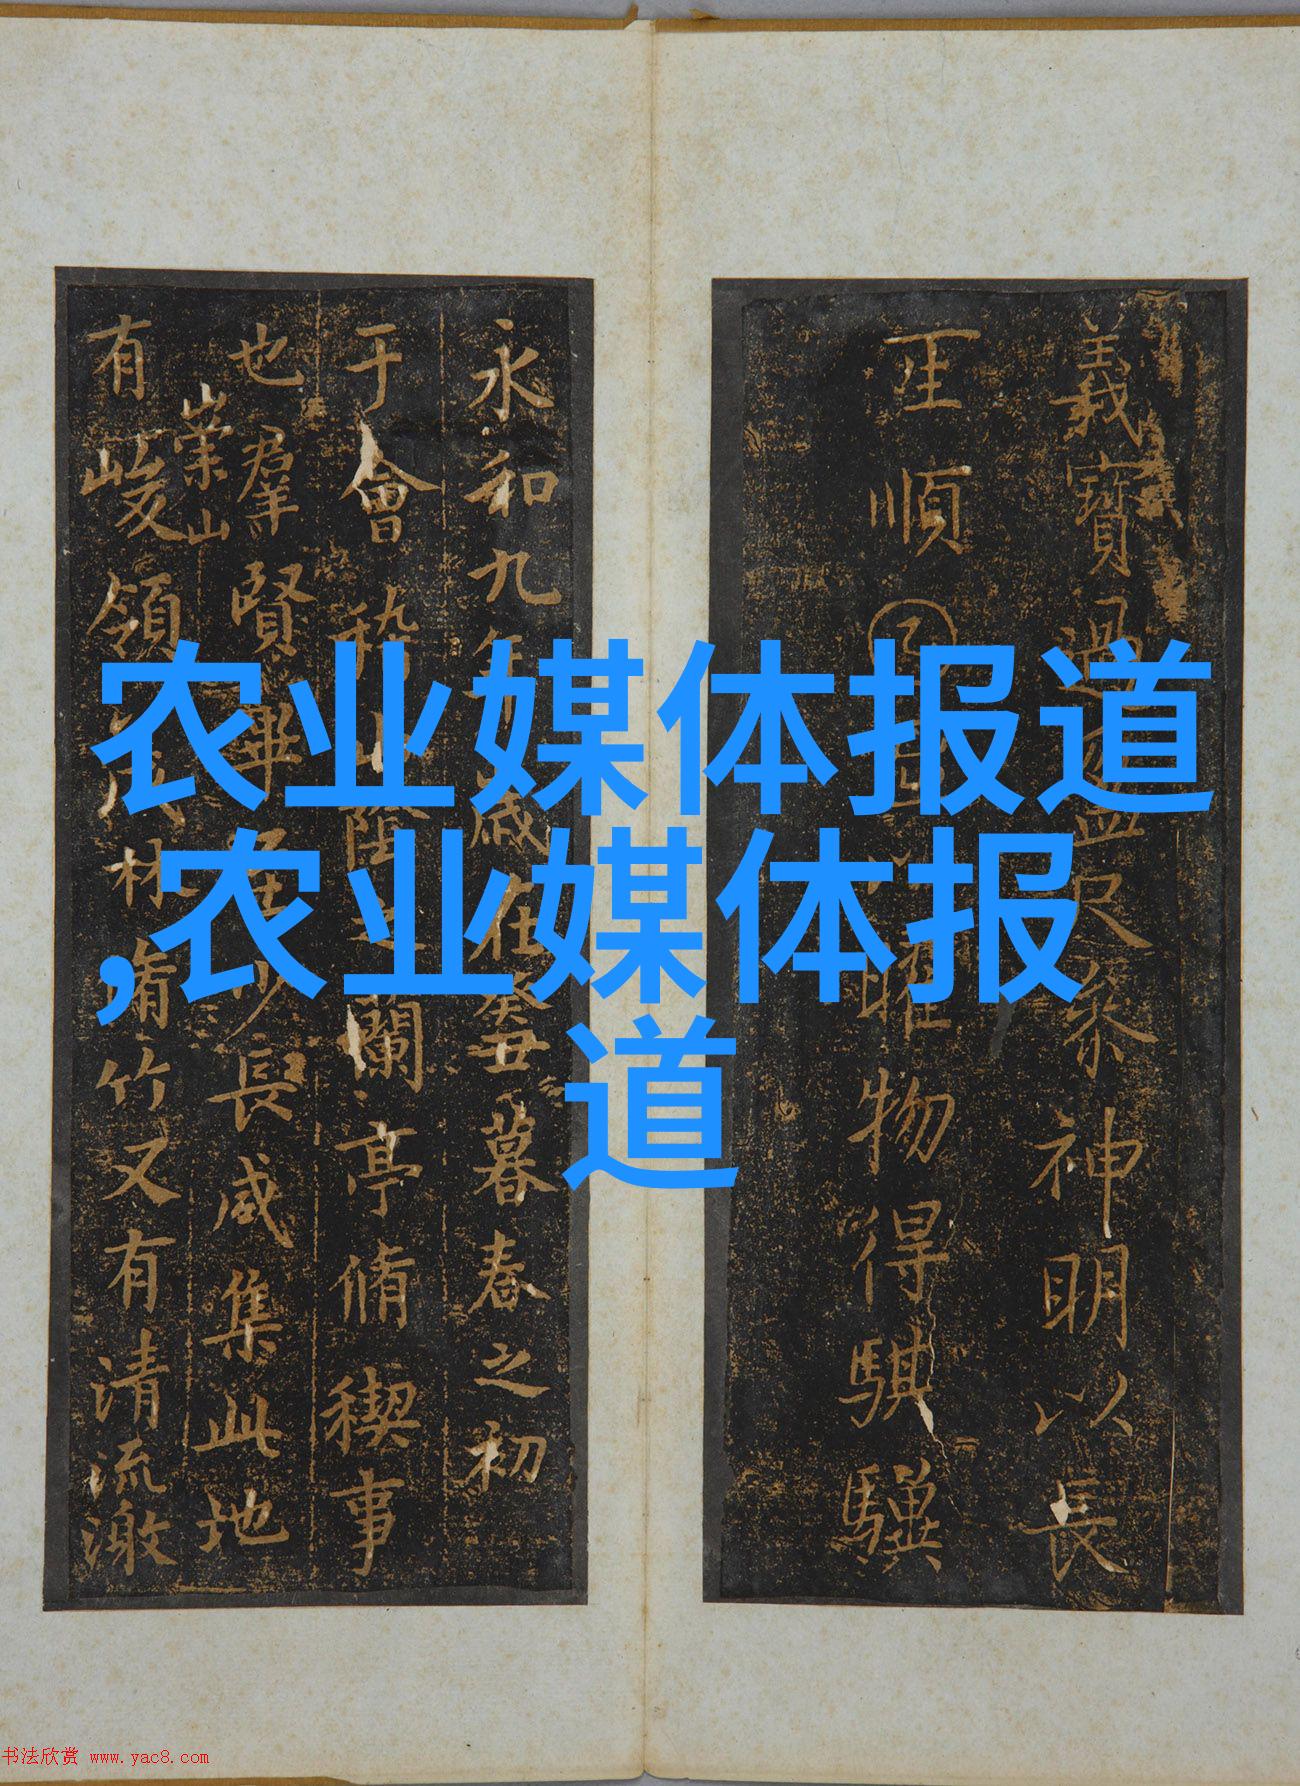 农业媒体报道
,农业媒体报
道
義寶盈尺神明以長
順物得騏驥
永和九年歲在癸丑暮春之初
于會稽山陰之蘭亭脩禊事
也羣賢畢至少長咸集此地
崇山
有峻領茂林脩竹又有清流激
书法欣赏 www.yac8.com